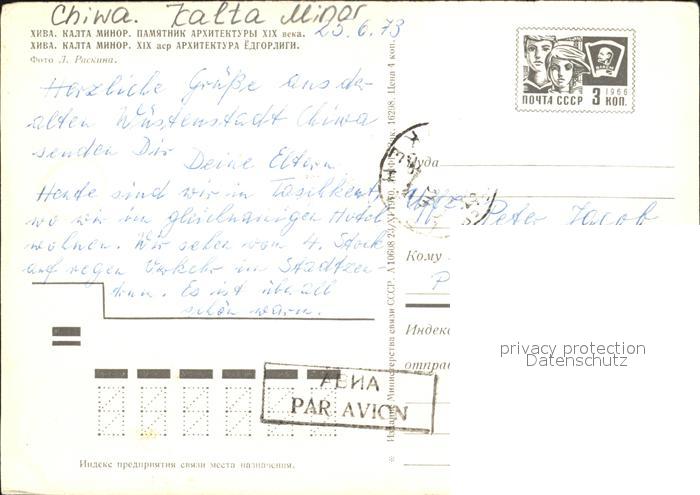 Chiwa. Kalta Minor
25.6.73
ХИВА. КАЛТА МИНОР. ПАМЯТНИК АРХИТЕКТУРЫ XIX века.
ХИВА. КАЛТА МИНОР. XIX аср АРХИТЕКТУРА ЁДГОРЛИГИ.
Фото Л. Раскина.
Herzliche Grüße aus der
alten Wüstenstadt Chiwa
senden Dir
Deine Eltern
Heute sind wir in Taschkent,
wo wir im gleichnamigen Hotel
wohnen. Wir sehen vom 4. Stock
auf regen Verkehr im Stadtzen-
trum. Es ist überall
schön warm.
Издание Министерства связи СССР. А 10608 Цена 4 коп.
ПОЧТА СССР 3 КОП.
1966
ВЛКСМ
Куда
Peter Jacob
Кому
Индекс
отправ
АВИА
PAR AVION
Индекс предприятия связи места назначения.
privacy protection
Datenschutz